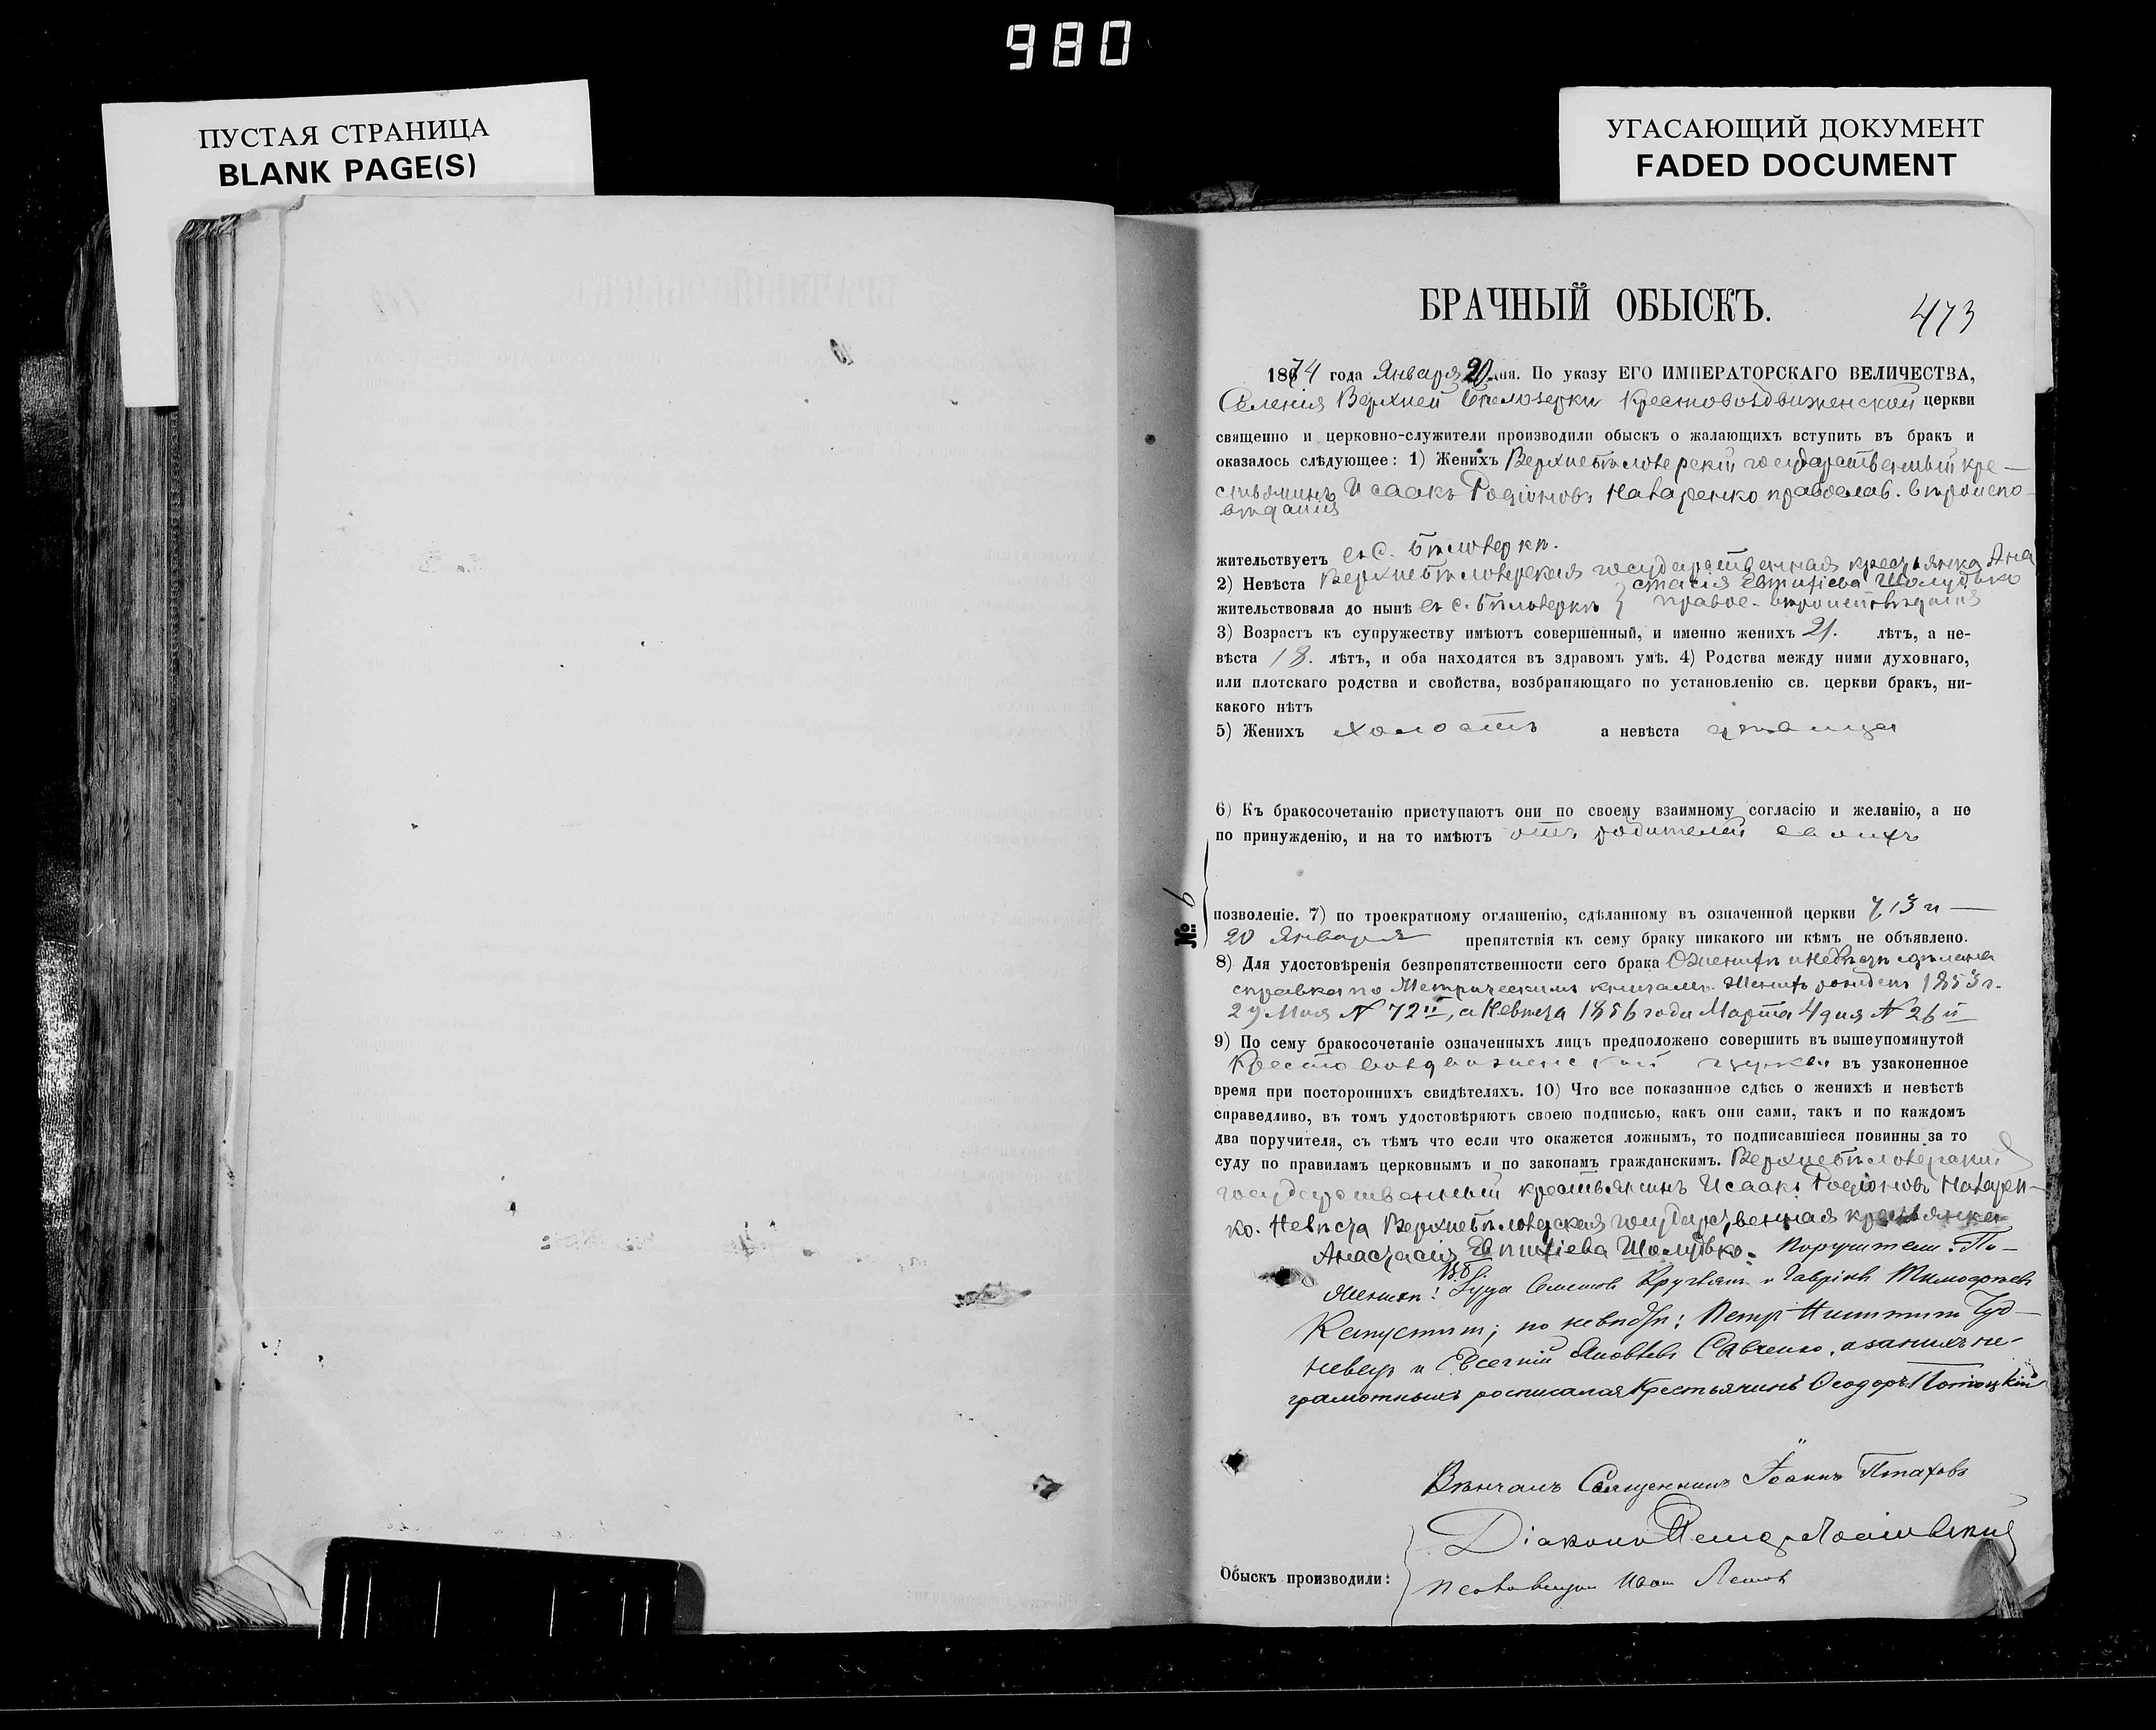 980
ПУСТАЯ СТРАНИЦА
BLANK PAGE(S)
УГАСАЮЩИЙ ДОКУМЕНТ
FADED DOCUMENT
БРАЧНЫЙ ОБЫСКЪ.
473
1874 года Января 20 дня. По указу ЕГО ИМПЕРАТОРСКАГО ВЕЛИЧЕСТВА,
Селенія Верхней Бѣлозерки Крестовоздвиженской церкви
священно и церковно-служители производили обыскъ о жалающихъ вступить въ бракъ и
оказалось слѣдующее: 1) Женихъ Верхнебѣлозерскій государственный кре-
стьянинъ Исаакъ Родіоновъ Назаренко православ. вѣроиспо-
вѣданія
жительствуетъ въ с. Бѣлозеркѣ.
2) Невѣста Верхнебѣлозерская государственная крестьянка Ана
стасія Евтихіева Шолудько
жительствовала до нынѣ въ с. Бѣлозеркѣ правос. вѣроисповѣданія
3) Возрастъ къ супружеству имѣютъ совершенный, и именно женихъ 21. лѣтъ, а не-
вѣста 18. лѣтъ, и оба находятся въ здравомъ умѣ. 4) Родства между ними духовнаго,
или плотскаго родства и свойства, возбраняющаго по установленію св. церкви бракъ, ни-
какого нѣтъ
5) Женихъ холостъ а невѣста дѣвица
6) Къ бракосочетанію приступаютъ они по своему взаимному согласію и желанію, а не
по принужденію, и на то имѣютъ отъ родителей своихъ
№ 6
позволеніе. 7) по троекратному оглашенію, сдѣланному въ означенной церкви 7, 13 и
20 Января препятствія къ сему браку никакого ни кѣмъ не объявлено.
8) Для удостовѣренія безпрепятственности сего брака О женихѣ и невѣстѣ сдѣлана
справка по Метрическимъ книгамъ. Женихъ рожденъ 1853 г.
29 Мая № 72й, а Невѣста 1856 года Марта 4 дня № 26й
9) По сему бракосочетаніе означенныхъ лицъ предположено совершить въ вышеупомянутой
Крестовоздвиженской церкви въ узаконенное
время при постороннихъ свидѣтеляхъ. 10) Что все показанное сдѣсь о женихѣ и невѣстѣ
справедливо, въ томъ удостовѣряютъ своею подписью, какъ они сами, такъ и по каждомъ
два поручителя, съ тѣмъ что если что окажется ложнымъ, то подписавшіеся повинны за то
суду по правиламъ церковнымъ и по законамъ гражданскимъ. Верхнебѣлозерскій
государственный крестьянинъ Исаакъ Родіоновъ Назарен-
ко. Невѣста Верхнебѣлозерская государственная крестьянка
Анастасія Евтихіева Шолудько. Поручители: По
Женихѣ: Гавріилъ Тимофѣевъ
по невѣстѣ: Петръ
и Евсегній Яковлевъ Савченко, а за нихъ не-
грамотныхъ росписался Крестьянинъ Ѳеодоръ Потоцкій
Вѣнчалъ Священникъ Іоаннъ Птаховъ
Діаконъ
Обыскъ производили:
Иван